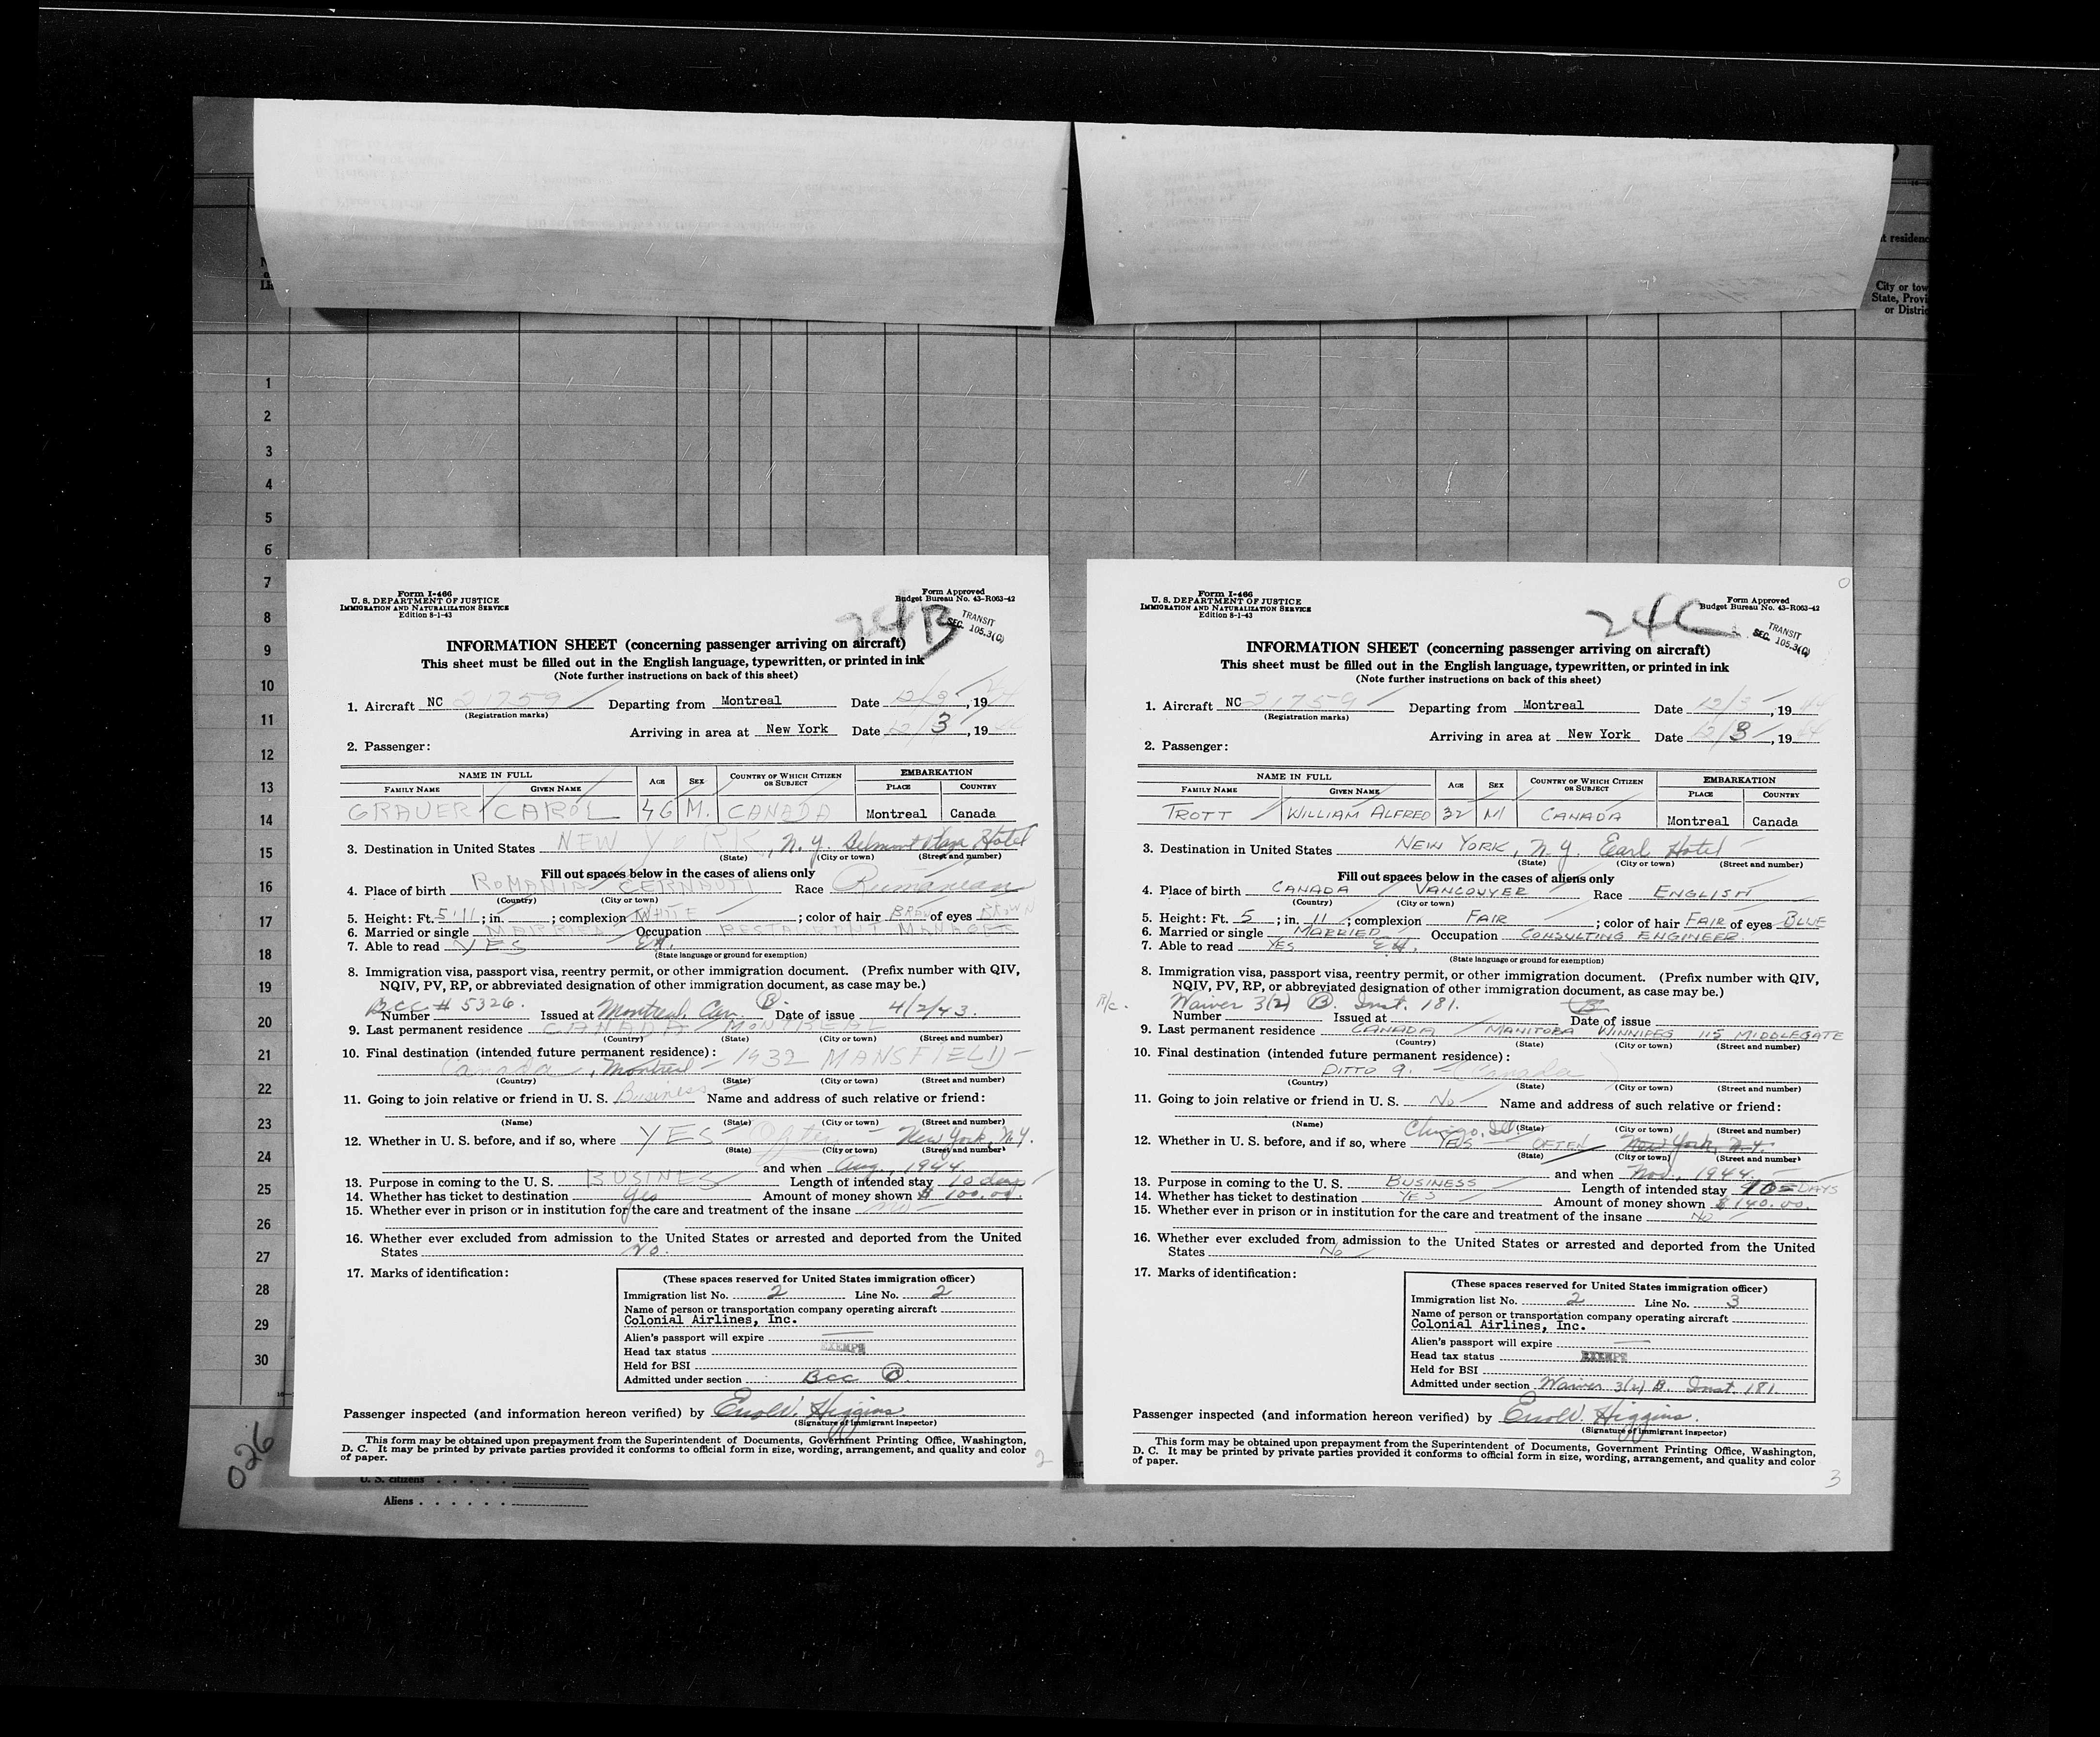 t residence
City or tow
State, Provi
or Distric
N
o
Li
1
2
3
4
5
6
7
8
9
10
11
12
13
14
15
16
17
18
19
20
21
22
23
24
25
26
27
28
29
30
026
U. S. citizens
Aliens
Form I-466
U. S. DEPARTMENT OF JUSTICE
IMMIGRATION AND NATURALIZATION SERVICE
Edition 8-1-43
Form Approved
Budget Bureau No. 43-R063-42
24B
TRANSIT
SEC. 105.3(C)
INFORMATION SHEET (concerning passenger arriving on aircraft)
This sheet must be filled out in the English language, typewritten, or printed in ink
(Note further instructions on back of this sheet)
1. Aircraft NC 21759 Departing from Montreal Date 12/3, 1944
(Registration marks)
Arriving in area at New York Date 12/3, 1944
2. Passenger:
NAME IN FULL AGE SEX COUNTRY OF WHICH CITIZEN OR SUBJECT EMBARKATION
FAMILY NAME GIVEN NAME PLACE COUNTRY
GRAUER CAROL 46 M. CANADA Montreal Canada
3. Destination in United States NEW YORK, N.Y. Belmont Plaza Hotel
(State) (City or town) (Street and number)
Fill out spaces below in the cases of aliens only
4. Place of birth ROMANIA CERNAUTI Race Rumanian
(Country) (City or town)
5. Height: Ft. 5'11; in. ; complexion WHITE; color of hair BRAW of eyes BROWN
6. Married or single MARRIED Occupation RESTAURANT MANAGER
7. Able to read YES EH.
(State language or ground for exemption)
8. Immigration visa, passport visa, reentry permit, or other immigration document. (Prefix number with QIV,
NQIV, PV, RP, or abbreviated designation of other immigration document, as case may be.)
Number BCC # 5326. Issued at Montreal, Can. B. Date of issue 4/2/43.
9. Last permanent residence CANADA MONTREAL
(Country) (State) (City or town) (Street and number)
10. Final destination (intended future permanent residence): 1432 MANSFIELD
Canada, Montreal
(Country) (State) (City or town) (Street and number)
11. Going to join relative or friend in U. S. Business Name and address of such relative or friend:
(Name) (State) (City or town) (Street and number)
12. Whether in U. S. before, and if so, where YES Often New York, N.Y.
(State) (City or town) (Street and number)
and when Aug., 1944
13. Purpose in coming to the U. S. BUSINES Length of intended stay 10 days
14. Whether has ticket to destination Yes Amount of money shown $ 100.00.
15. Whether ever in prison or in institution for the care and treatment of the insane No
16. Whether ever excluded from admission to the United States or arrested and deported from the United
States No.
17. Marks of identification:
(These spaces reserved for United States immigration officer)
Immigration list No. 2 Line No. 2
Name of person or transportation company operating aircraft
Colonial Airlines, Inc.
Alien's passport will expire
Head tax status EXEMPT
Held for BSI
Admitted under section BCC B.
Passenger inspected (and information hereon verified) by Enol W. Higgins.
(Signature of immigrant inspector)
This form may be obtained upon prepayment from the Superintendent of Documents, Government Printing Office, Washington,
D. C. It may be printed by private parties provided it conforms to official form in size, wording, arrangement, and quality and color
of paper.
2
Form I-466
U. S. DEPARTMENT OF JUSTICE
IMMIGRATION AND NATURALIZATION SERVICE
Edition 8-1-43
Form Approved
Budget Bureau No. 43-R063-42
24C
TRANSIT
SEC. 105.3(C)
INFORMATION SHEET (concerning passenger arriving on aircraft)
This sheet must be filled out in the English language, typewritten, or printed in ink
(Note further instructions on back of this sheet)
1. Aircraft NC 21759 Departing from Montreal Date 12/3, 1944
(Registration marks)
Arriving in area at New York Date 12/3, 1944
2. Passenger:
NAME IN FULL AGE SEX COUNTRY OF WHICH CITIZEN OR SUBJECT EMBARKATION
FAMILY NAME GIVEN NAME PLACE COUNTRY
TROTT WILLIAM ALFRED 32 M CANADA Montreal Canada
3. Destination in United States NEW YORK, N.Y. Earl Hotel
(State) (City or town) (Street and number)
Fill out spaces below in the cases of aliens only
4. Place of birth CANADA VANCOUVER Race ENGLISH
(Country) (City or town)
5. Height: Ft. 5; in. 11; complexion FAIR; color of hair FAIR of eyes BLUE
6. Married or single MARRIED Occupation CONSULTING ENGINEER
7. Able to read YES EH.
(State language or ground for exemption)
8. Immigration visa, passport visa, reentry permit, or other immigration document. (Prefix number with QIV,
NQIV, PV, RP, or abbreviated designation of other immigration document, as case may be.)
Waiver 3(2) B. Inst. 181.
Number Issued at Date of issue
9. Last permanent residence CANADA MANITOBA WINNIPEG 115 MIDDLEGATE
(Country) (State) (City or town) (Street and number)
10. Final destination (intended future permanent residence):
DITTO 9. (Canada)
(Country) (State) (City or town) (Street and number)
11. Going to join relative or friend in U. S. No Name and address of such relative or friend:
(Name) (State) (City or town) (Street and number)
Chicago, Ill
12. Whether in U. S. before, and if so, where YES OFTEN New York, N.Y.
(State) (City or town) (Street and number)
and when Nov., 1944.
13. Purpose in coming to the U. S. BUSINESS Length of intended stay 10 DAYS
14. Whether has ticket to destination YES Amount of money shown $ 140.00.
15. Whether ever in prison or in institution for the care and treatment of the insane No
16. Whether ever excluded from admission to the United States or arrested and deported from the United
States No
17. Marks of identification:
(These spaces reserved for United States immigration officer)
Immigration list No. 2 Line No. 3
Name of person or transportation company operating aircraft
Colonial Airlines, Inc.
Alien's passport will expire
Head tax status EXEMPT
Held for BSI
Admitted under section Waiver 3(2) B. Inst. 181
Passenger inspected (and information hereon verified) by Enol W. Higgins.
(Signature of immigrant inspector)
This form may be obtained upon prepayment from the Superintendent of Documents, Government Printing Office, Washington,
D. C. It may be printed by private parties provided it conforms to official form in size, wording, arrangement, and quality and color
of paper.
3